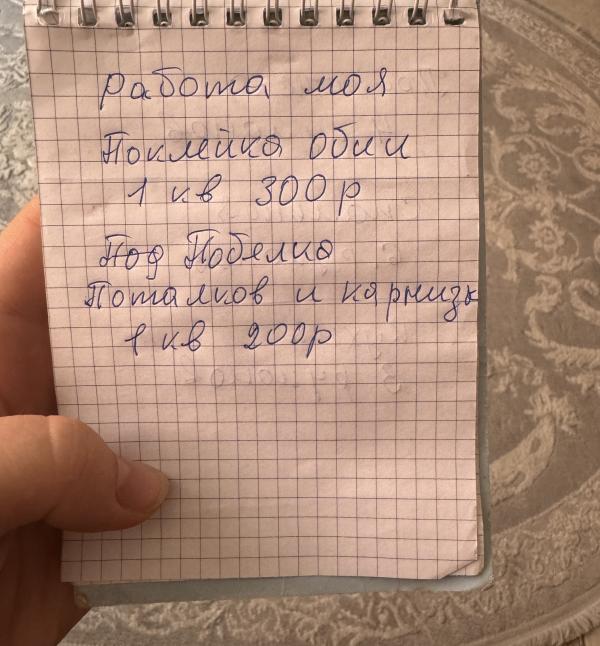 Работа моя
Поклейка обии
1 кв 300р
Под Побелка
Поталков и карнизы
1 кв 200р